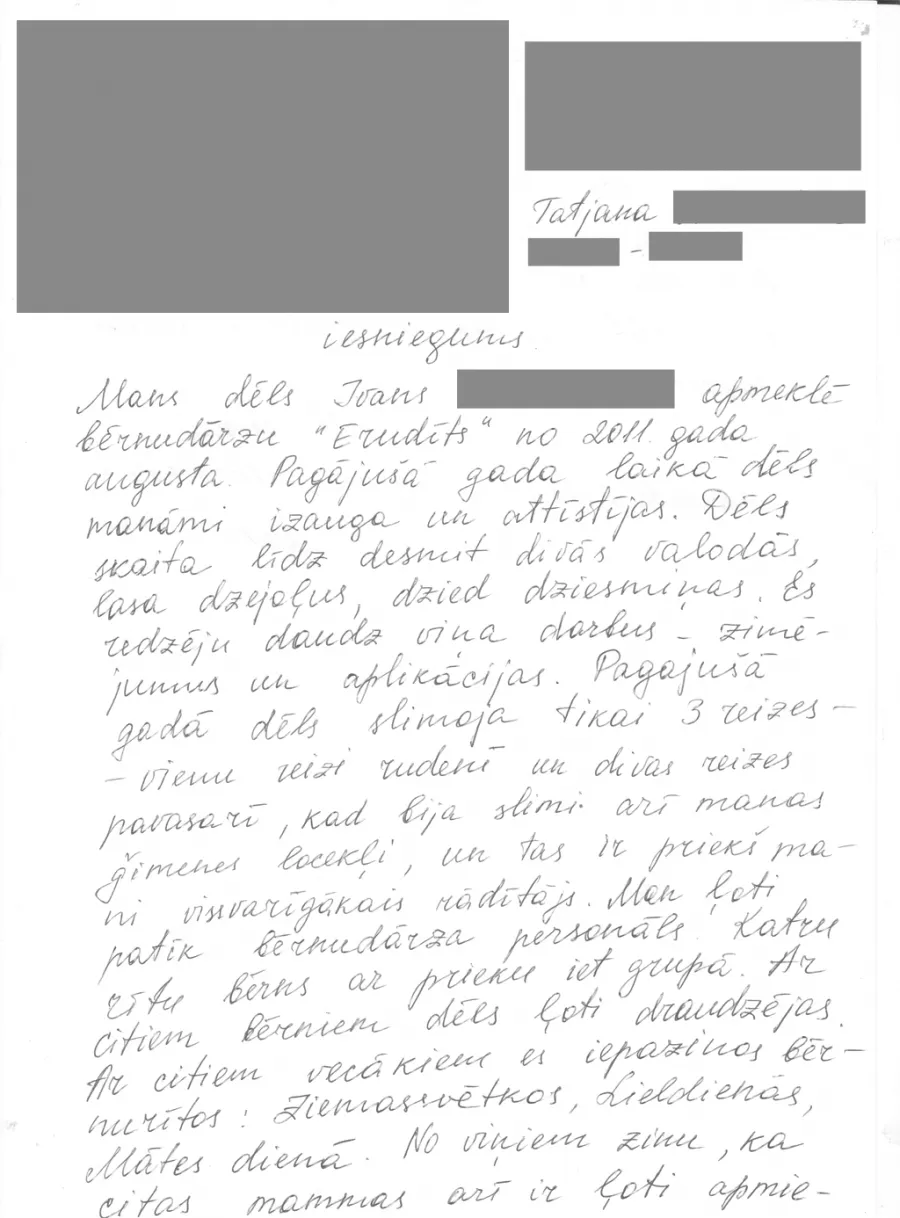 Tatjana
-
iesniegums
Mans dēls Ivans apmeklē
bērnudārzu "Erudīts" no 2011. gada
augusta. Pagājušā gada laikā dēls
manāmi izauga un attīstījas. Dēls
skaita līdz desmit divās valodās,
lasa dzejoļus, dzied dziesmiņas. Es
redzēju daudz viņa darbus - zīmē-
jumus un aplikācijas. Pagajušā
gadā dēls slimoja tikai 3 reizes -
- vienu reizi rudenī un divas reizes
pavasarī, kad bija slimi arī manas
ģimenes locekļi, un tas ir priekš ma-
ni vissvarīgākais rādītājs. Man ļoti
patīk bērnudārza personāls! Katru
rītu bērns ar prieku iet grupā. Ar
citiem bērniem dēls ļoti draudzējas.
Ar citiem vecākiem es iepazinos bēr-
nurītos: Ziemassvētkos, Lieldienās,
Mātes dienā. No viņiem zinu, ka
citas mammas arī ir ļoti apmie-